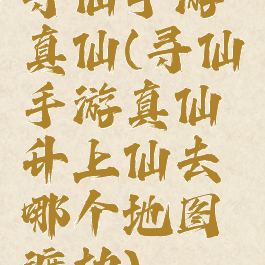 寻仙手游
真仙(寻仙
手游真仙
升上仙去
哪个地图
渡劫)